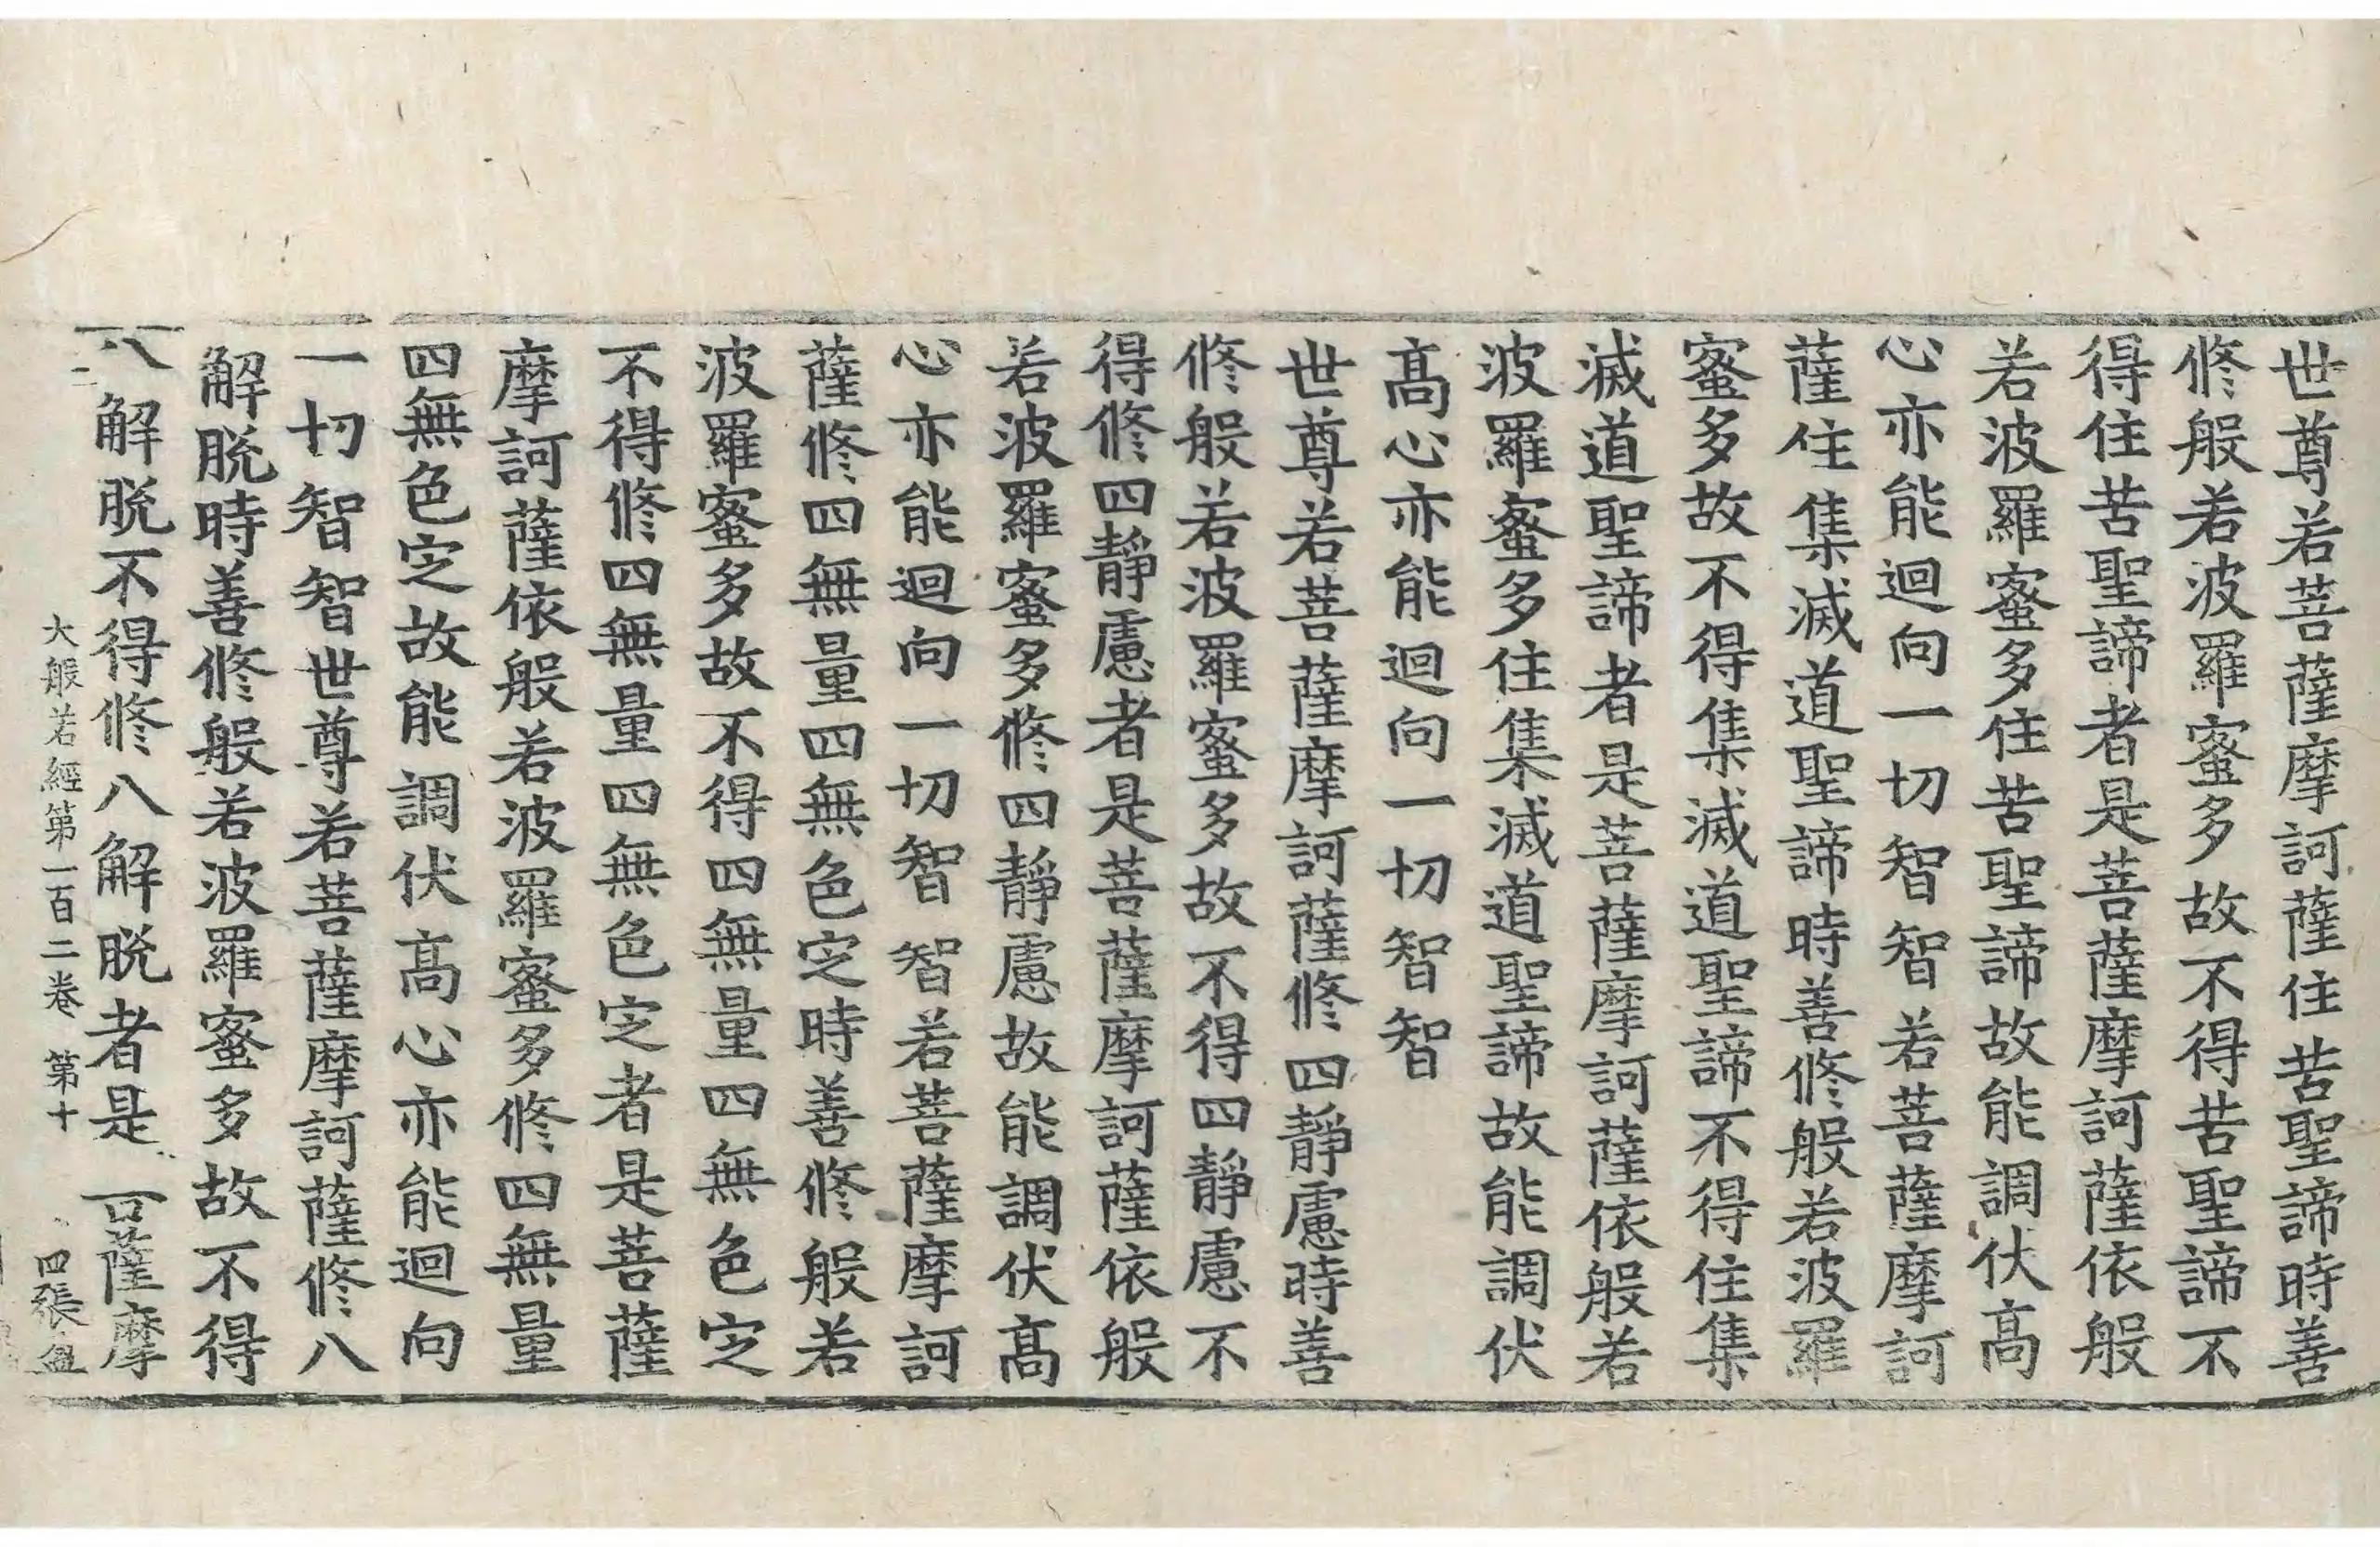 世尊若菩薩摩訶薩住苦聖諦時善
修般若波羅蜜多故不得苦聖諦不
得住苦聖諦者是菩薩摩訶薩依般
若波羅蜜多住苦聖諦故能調伏高
心亦能迴向一切智智若菩薩摩訶
薩住集滅道聖諦時善修般若波羅
蜜多故不得集滅道聖諦不得住集
滅道聖諦者是菩薩摩訶薩依般若
波羅蜜多住集滅道聖諦故能調伏
髙心亦能迴向一切智智
世尊若菩薩摩訶薩修四靜慮時善
修般若波羅蜜多故不得四靜慮不
得修四靜慮者是菩薩摩訶薩依般
若波羅蜜多修四靜慮故能調伏髙
心亦能迴向一切智智若菩薩摩訶
薩修四無量四無色定時善修般若
波羅蜜多故不得四無量四無色定
不得修四無量四無色定者是菩薩
摩訶薩依般若波羅蜜多修四無量
四無色定故能調伏髙心亦能迴向
一切智智世尊若菩薩摩訶薩修八
解脫時善修般若波羅蜜多故不得
八解脫不得修八解脫者是 薩摩
大般若經第一百二卷 第十四張 盈